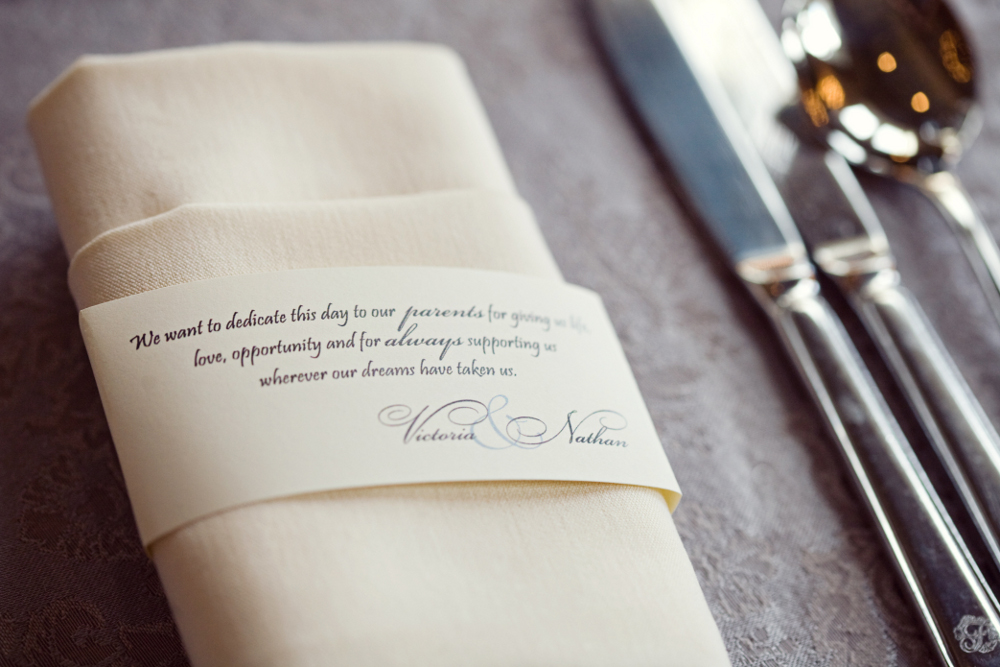 We want to dedicate this day to our parents for giving us life,
love, opportunity and for always supporting us
wherever our dreams have taken us.
Victoria & Nathan